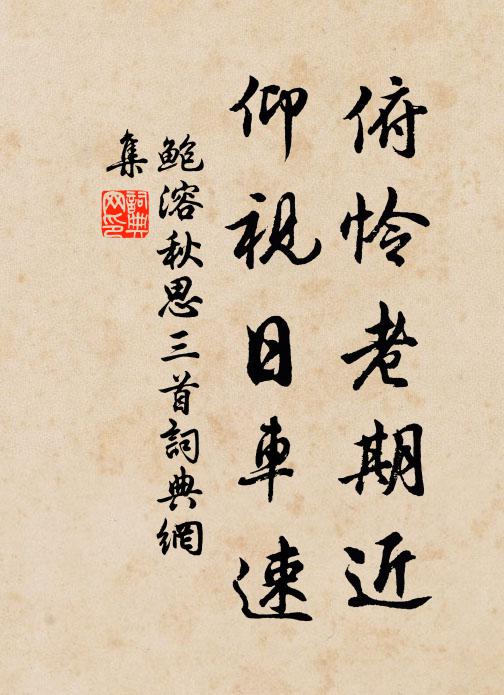 俯怜老期近
仰視日車速
鲍溶秋思三首詞典網
集
詞典
网印